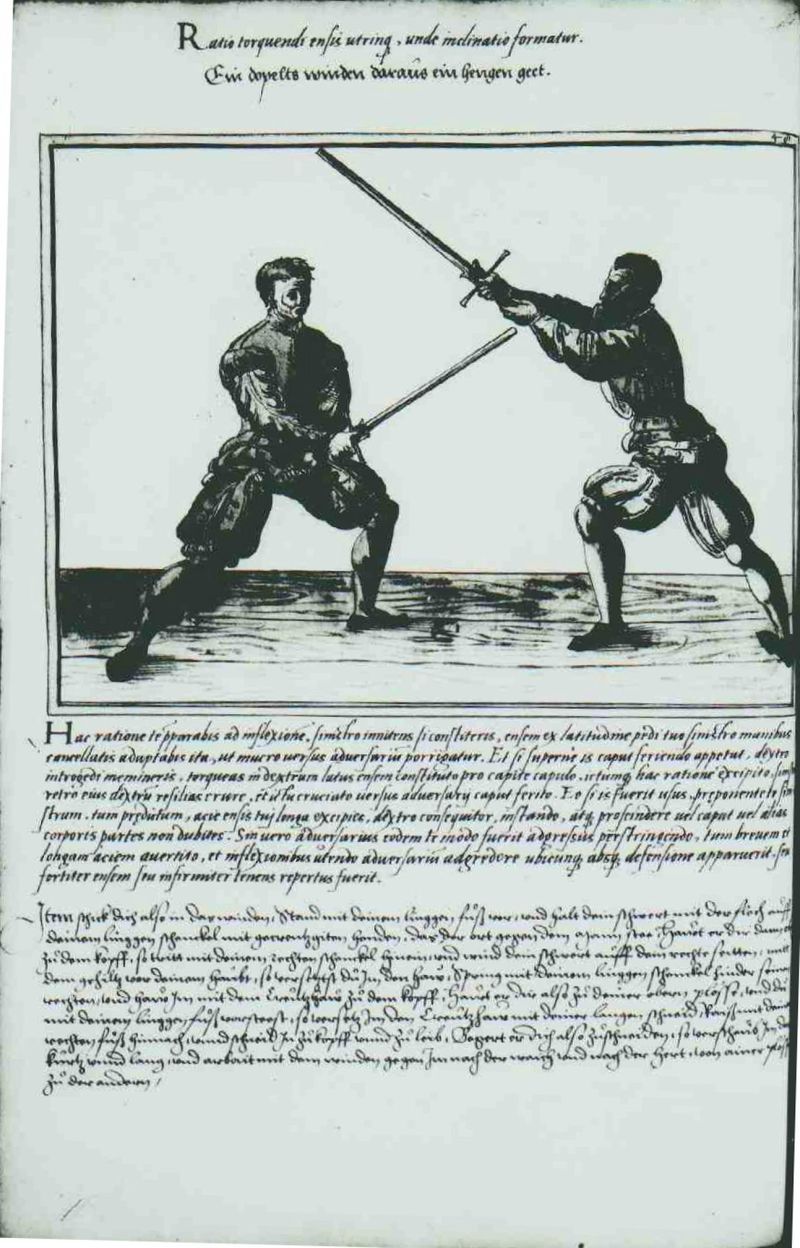 Ratio torquendi ensis utrinq, unde inclinatio formatur.
Ein dopelts winden daraus ein hengen geet.
Hac ratione te pparabis ad inflexione, sinistro innitens si constiteris, ensem ex latitudine pedi tuo sinistro manibus
cancellatis adaptabis ita, ut mucro versus adversariu porrigatur. Et si superne is caput feriendo appetat, dextro
introgredi memineris, torqueas in dextrum latus ensem constituto pro capite capulo, ictumq hac ratione excipito,
retro eius dextru resilias crure, et ictu cruciato versus adversarij caput ferito. Eo si is fuerit usus, preponente te sini
strum, tum predictum, acie ensis tuj longa excipies, dextro consequitor, instando, atq proscindere vel caput vel alias
corporis partes non dubites. Sin vero adversarius eodem te modo fuerit adgressus perstringendo, tum brevem et
longam aciem avertito, et inflexionibus utendo adversariu adgredere ubicunq absq defensione apparuerit, seu
fortiter ensem seu infirmiter tenens repertus fuerit.
Item schick dich also in das winden, Stand mit deinem linggen fuß vor, und halt dein schwert mit der flech auff
deinem linggen schenckel mit gecreutzgiten henden, das der ort gegen dem mann stee, Hawt er dir dann
zu dem kopff, so tritt mit deinem rechten schenckel hinein, und wind dein schwert auff dein rechte seitten, mit
dem gehiltz vor deinem haubt, so versetzst du Im den haw, Spring mit deinem linggen schenckel hinder seinen
rechten, und haw Im mit dem Creutzhaw zu dem kopff, Hawt er dir also zu deiner obern plösse, und du
mit deinem linggen fuß vorsteest, so versetz Im den Creutzhaw mit deiner langen schneid, mit deinem
rechten fuß hinnach, unnd schneid In zu kopff unnd zu leib, Begert er dich also zuschneiden, so verscheub Im
kurtz unnd lang, und arbait mit dem winden gegen Im nach der waich und nach der hert, von ainer plöß
zu der andern,